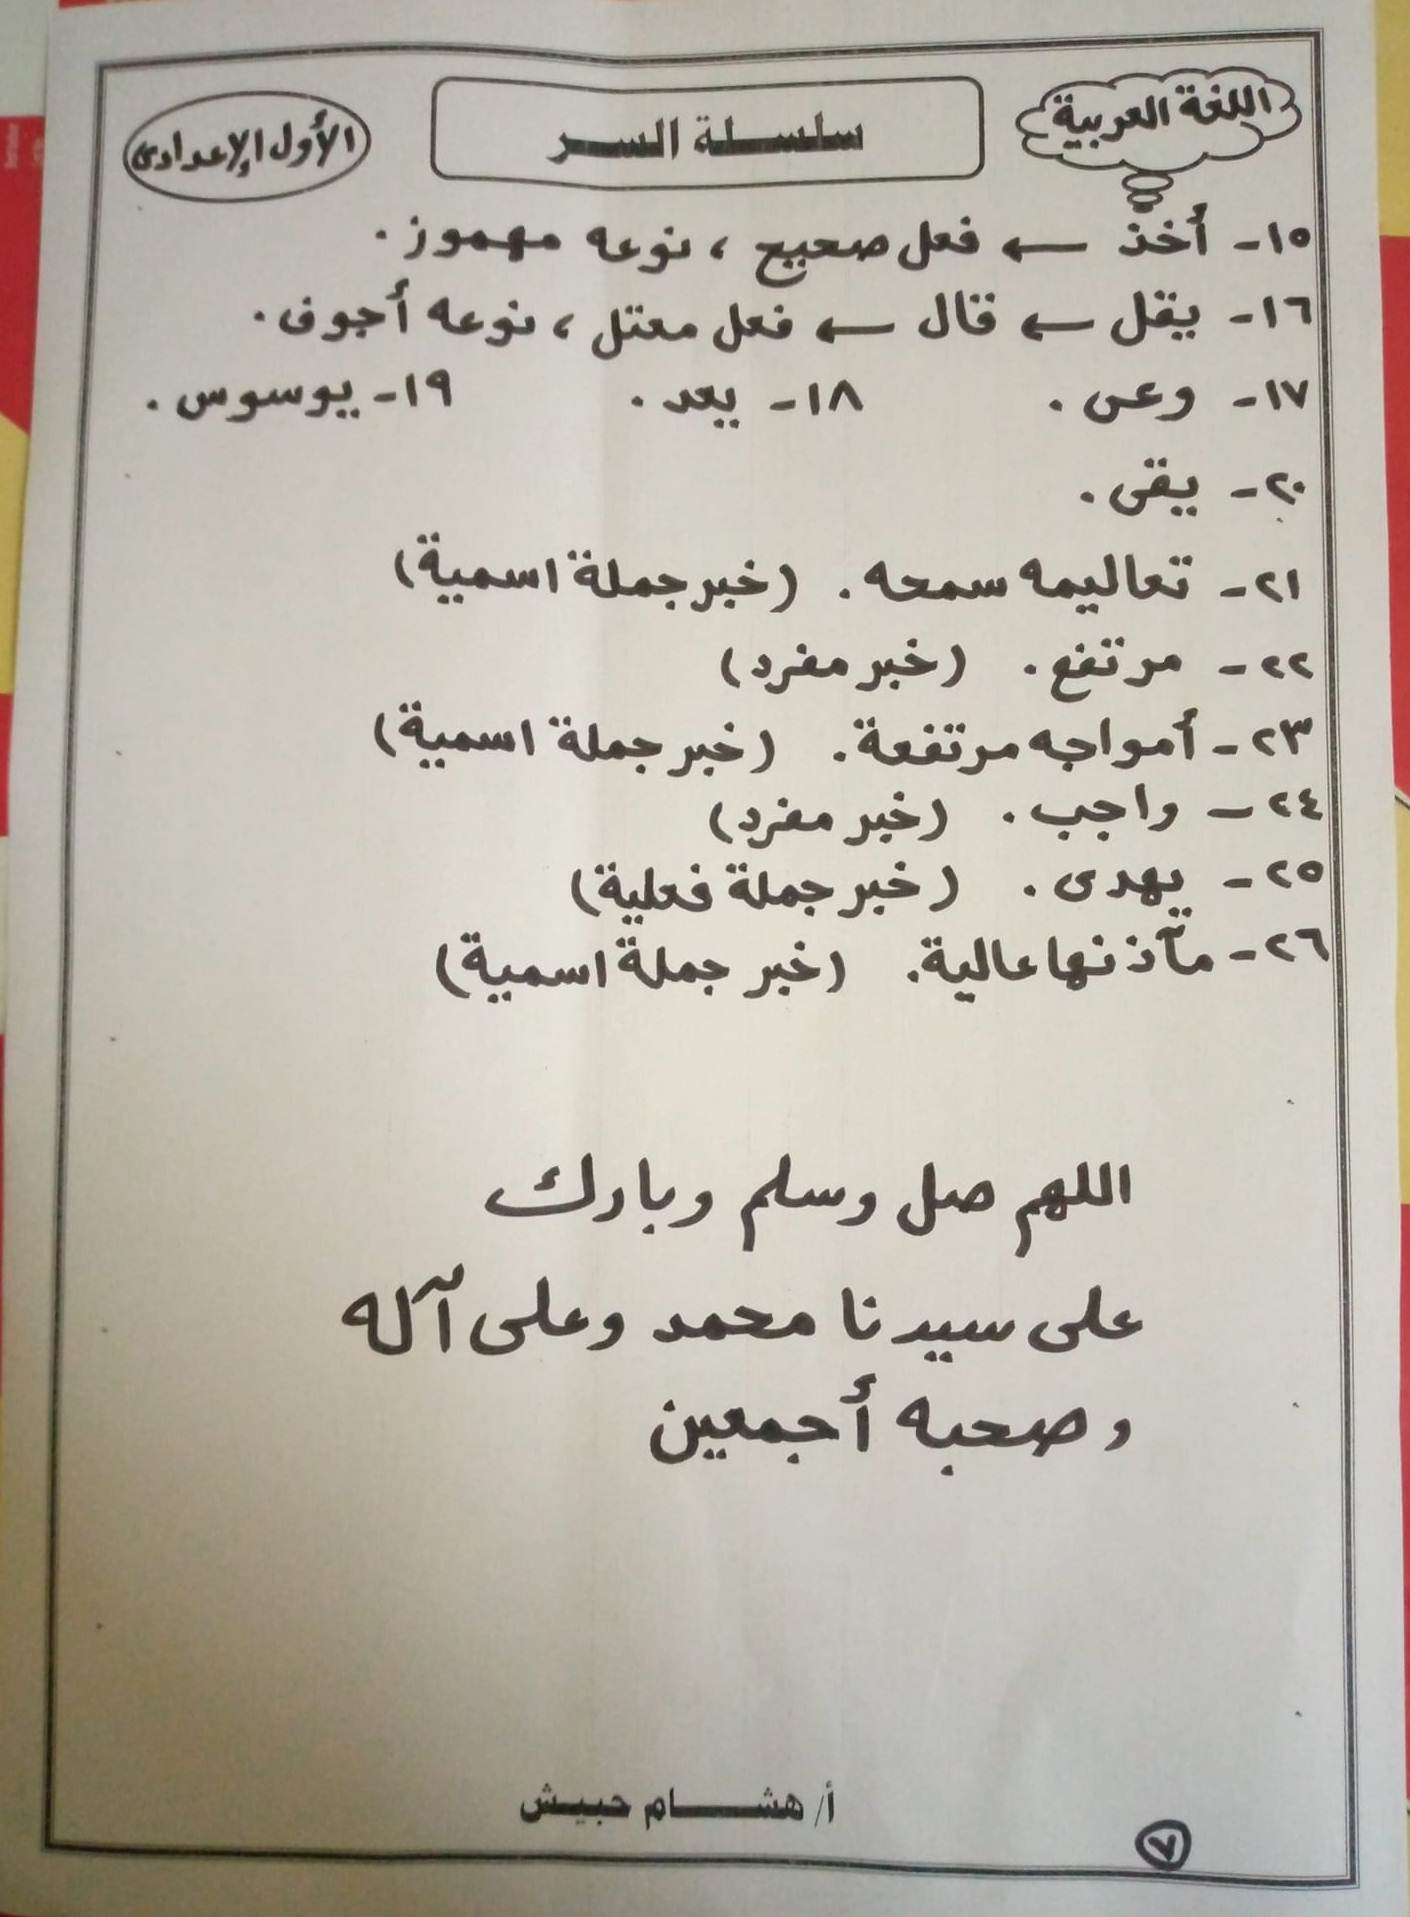 اللغة العربية
سلسلة السر
الأول الإعدادى
١٥- أخذ ← فعل صحيح ، نوعه مهموز .
١٦- يقل ← قال ← فعل معتل ، نوعه أجوف .
١٧- وعى . ١٨- يعد . ١٩- يوسوس .
٢٠- يقى .
٢١- تعاليمه سمحه . (خبر جملة اسمية)
٢٢- مرتفع . (خبر مفرد)
٢٣- أمواجه مرتفعة . (خبر جملة اسمية)
٢٤- واجب . (خبر مفرد)
٢٥- يهدى . (خبر جملة فعلية)
٢٦- مآذنها عالية . (خبر جملة اسمية)
اللهم صل وسلم وبارك
على سيدنا محمد وعلى آله
وصحبه أجمعين
أ/ هشام حبيش
٧